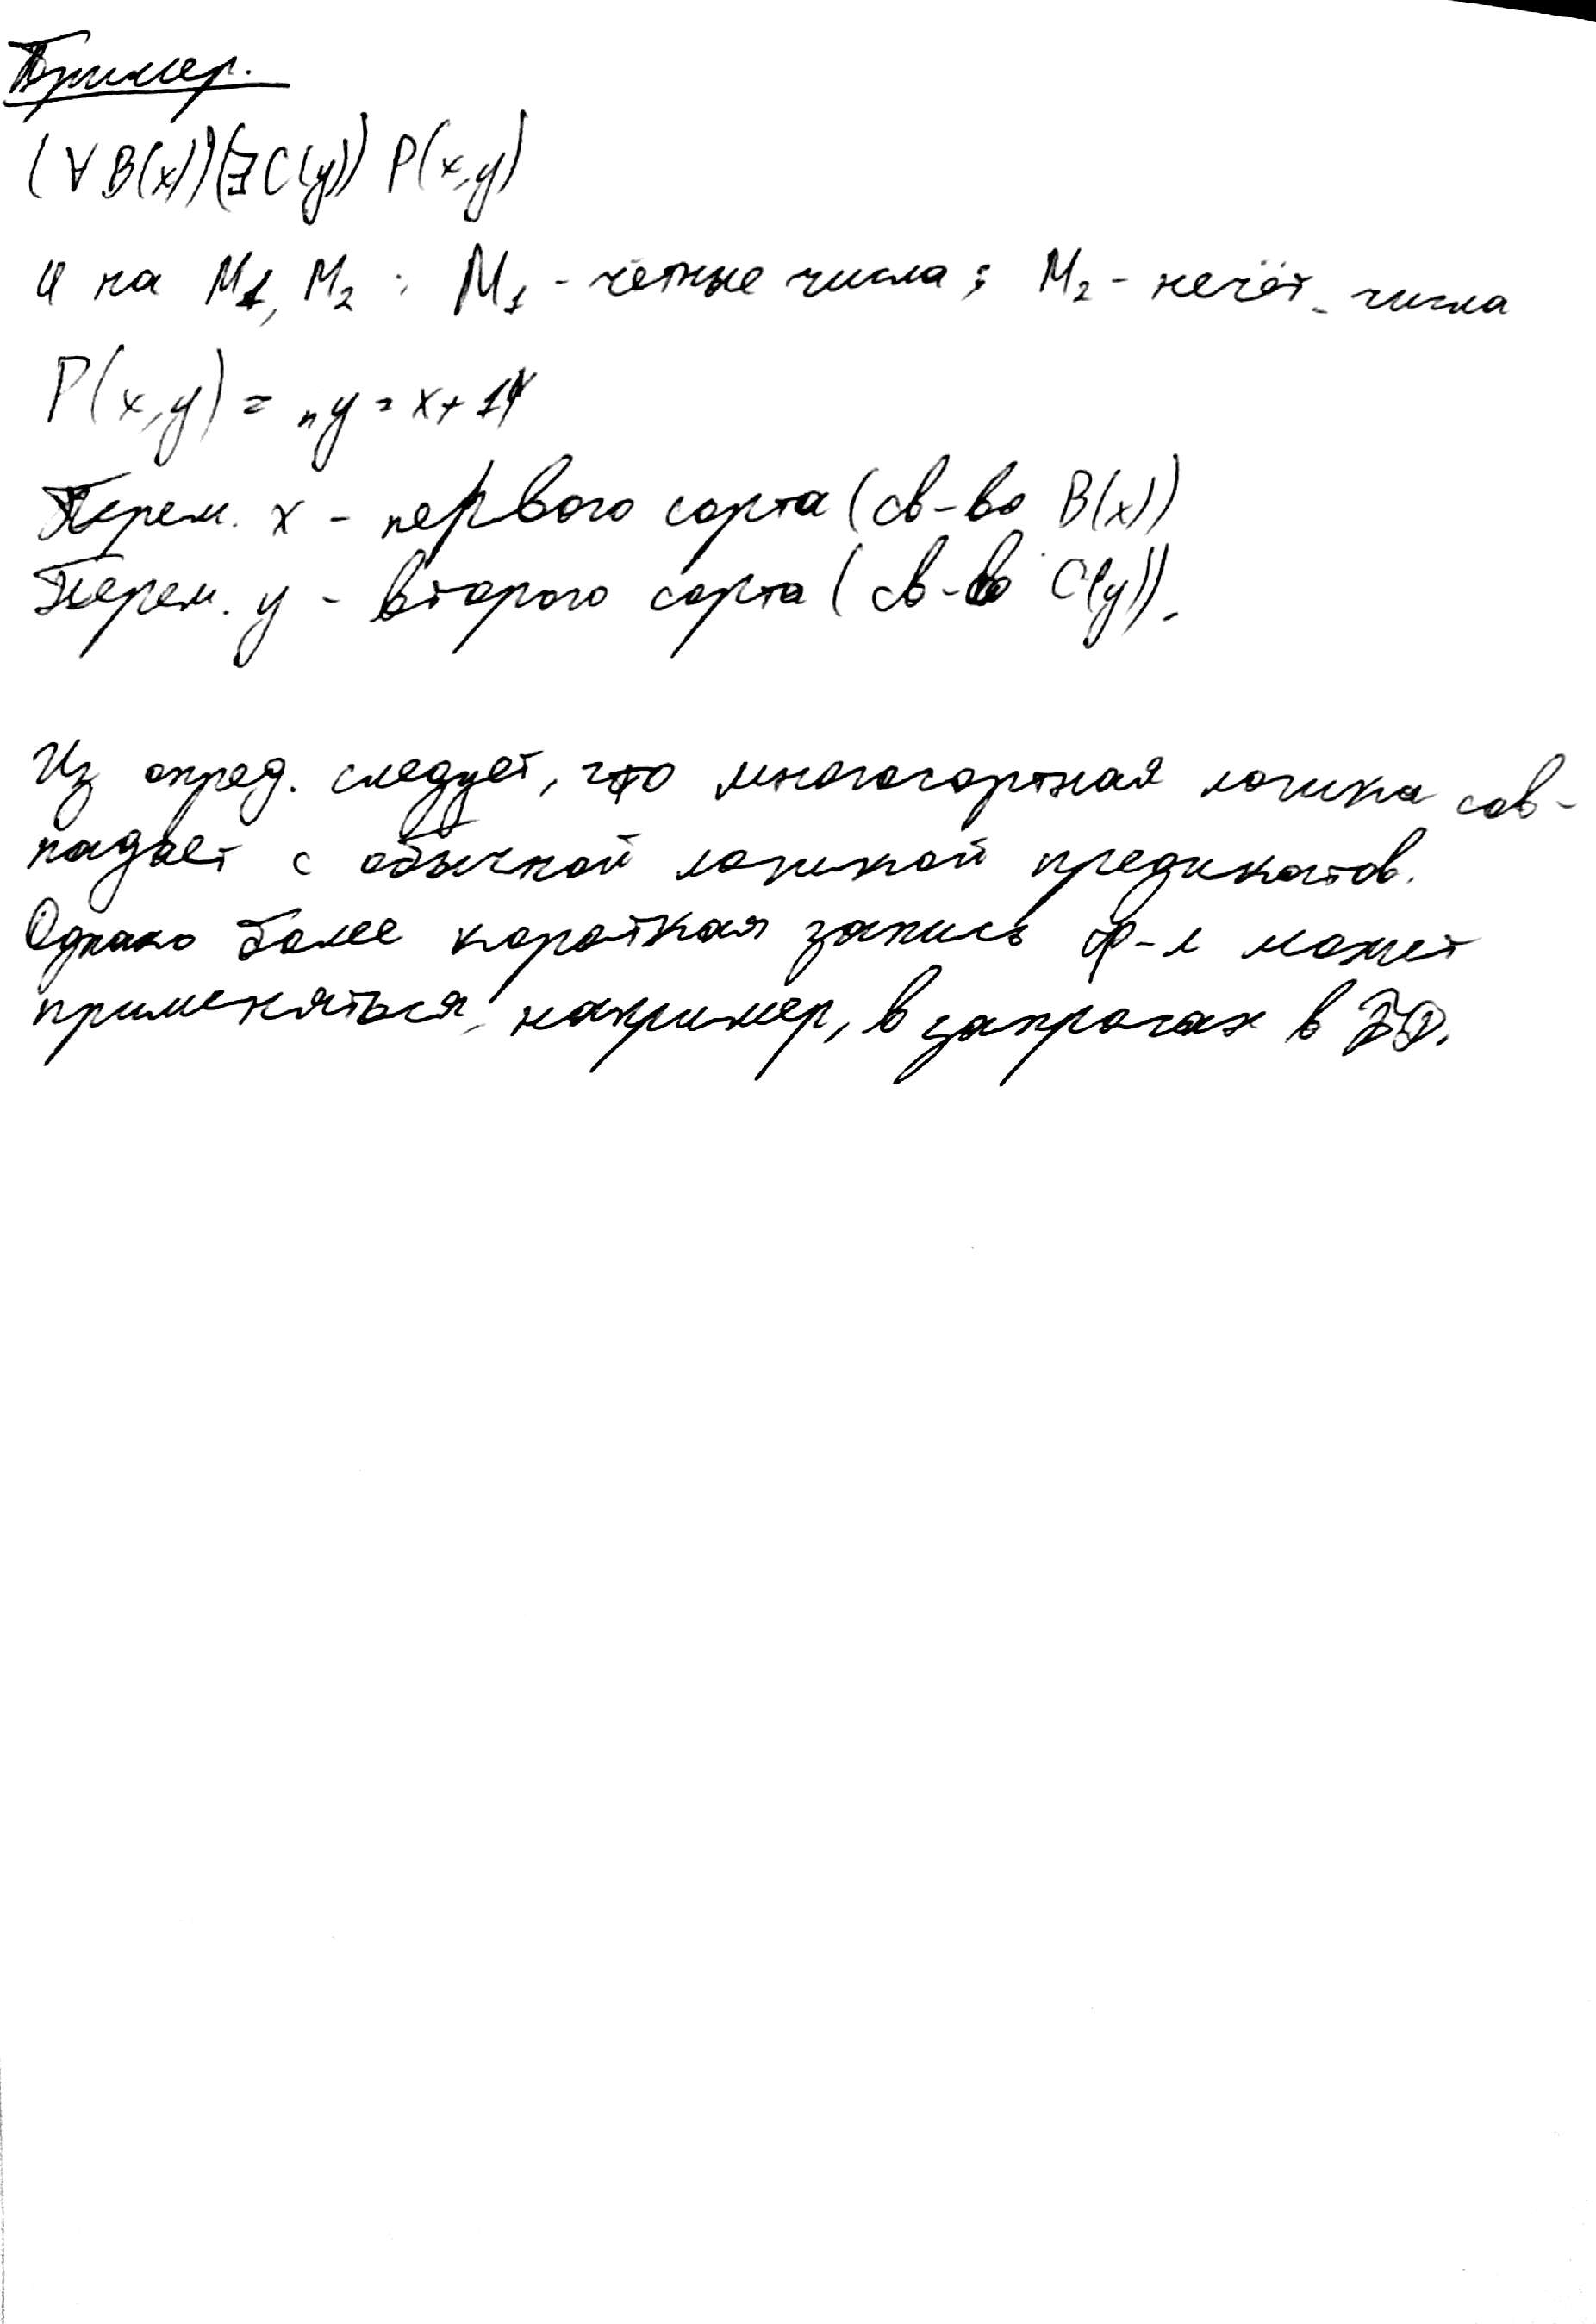 Пример.
(∀B(x))(∃C(y)) P(x,y)
И на M₁, M₂ : M₁ - чётные числа ; M₂ - нечёт. числа
P(x,y) = „y = x + 1"
Перем. x - первого сорта (св-во B(x))
Перем. y - второго сорта (св-во C(y)).
Из опред. следует, что многосортная логика сов-
падает с обычной логикой предикатов.
Однако более короткая запись ф-л может
применяться, например, в запросах в БД.